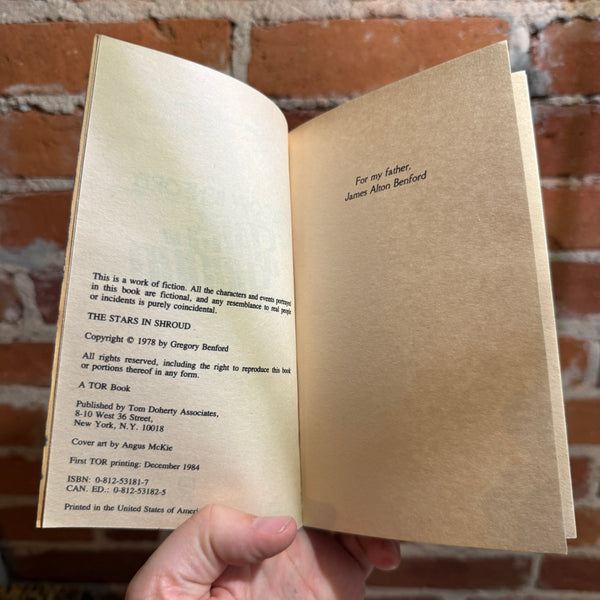 This is a work of fiction. All the characters and events portrayed
in this book are fictional, and any resemblance to real people
or incidents is purely coincidental.
THE STARS IN SHROUD
Copyright © 1978 by Gregory Benford
All rights reserved, including the right to reproduce this book
or portions thereof in any form.
A TOR Book
Published by Tom Doherty Associates,
8-10 West 36 Street,
New York, N.Y. 10018
Cover art by Angus McKie
First TOR printing: December 1984
ISBN: 0-812-53181-7
CAN. ED.: 0-812-53182-5
Printed in the United States of Ameri
For my father,
James Alton Benford